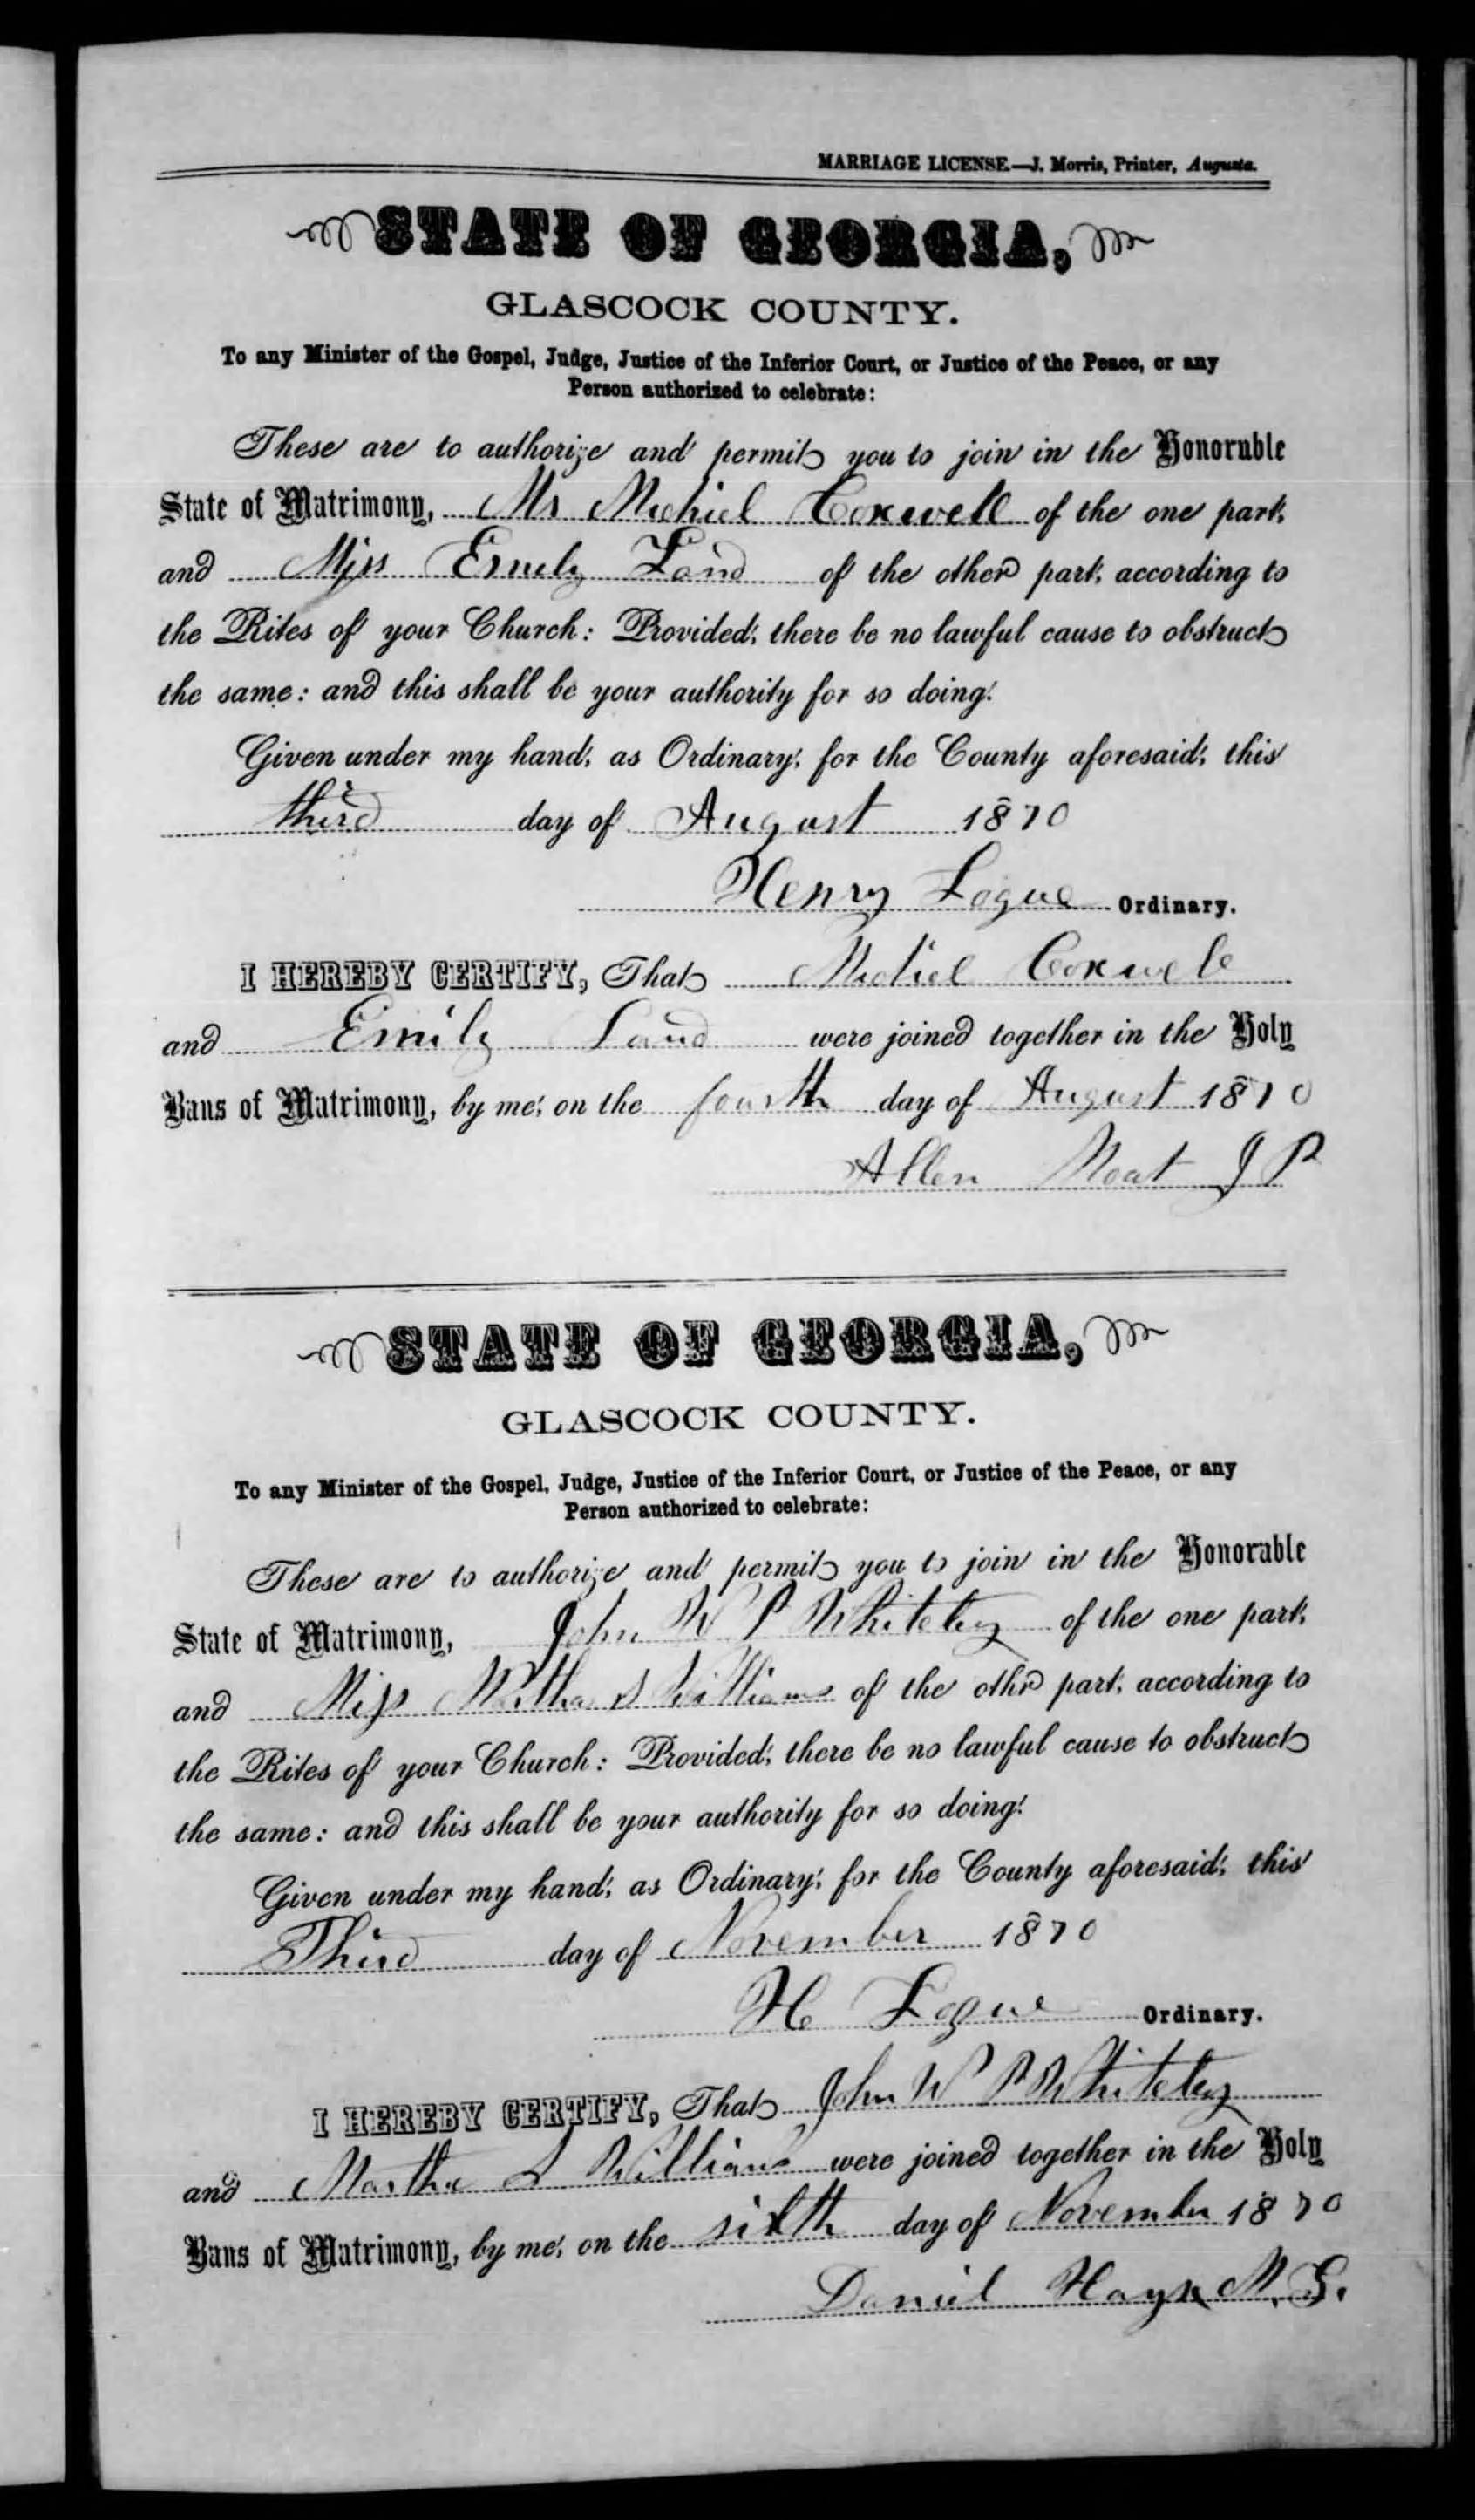 MARRIAGE LICENSE.—J. Morris, Printer, Augusta.
STATE OF GEORGIA,
GLASCOCK COUNTY.
To any Minister of the Gospel, Judge, Justice of the Inferior Court, or Justice of the Peace, or any
Person authorized to celebrate:
These are to authorize and permit you to join in the Honorable
State of Matrimony, Mr Michiel Coxwell of the one part,
and Miss Emily Land of the other part, according to
the Rites of your Church: Provided, there be no lawful cause to obstruct
the same: and this shall be your authority for so doing.
Given under my hand, as Ordinary, for the County aforesaid, this
third day of August 1870
Henry Logue Ordinary.
I HEREBY CERTIFY, That Michiel Coxwell
and Emily Land were joined together in the Holy
Bans of Matrimony, by me, on the fourth day of August 1870
Allen J P
STATE OF GEORGIA,
GLASCOCK COUNTY.
To any Minister of the Gospel, Judge, Justice of the Inferior Court, or Justice of the Peace, or any
Person authorized to celebrate:
These are to authorize and permit you to join in the Honorable
State of Matrimony, John W P Whiteley of the one part,
and Miss Martha S Williams of the othr part, according to
the Rites of your Church: Provided, there be no lawful cause to obstruct
the same: and this shall be your authority for so doing.
Given under my hand, as Ordinary, for the County aforesaid, this
Third day of November 1870
H Logue Ordinary.
I HEREBY CERTIFY, That John W P Whiteley
and Martha S Williams were joined together in the Holy
Bans of Matrimony, by me, on the sixth day of November 1870
Daniel M. G.